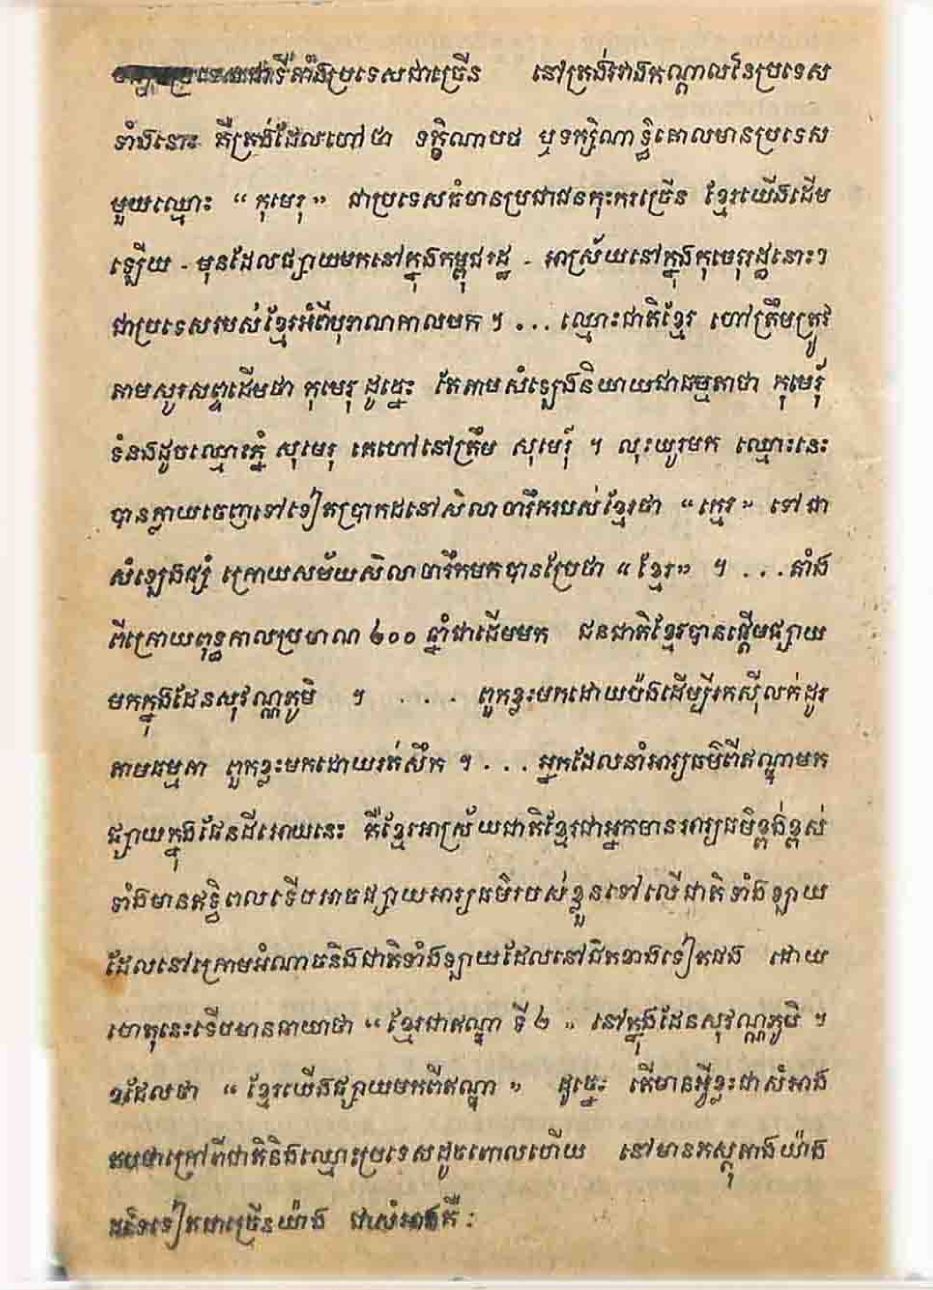 ជាទីតាំងប្រទេសជាច្រើន នៅត្រង់រវាងកណ្ដាលនៃប្រទេស
ទាំងនោះ គឺត្រង់ដែលហៅថា ទក្ខិណាបថ ឬទក្សិណាទ្ធិគោលមានប្រទេស
មួយឈ្មោះ “ កុមេរុ ” ជាប្រទេសធំមានប្រជាជនកុះករច្រើន ខ្មែរយើងដើម
ឡើយ - មុនដែលផ្សាយមកនៅក្នុងកម្ពុជរដ្ឋ - អាស្រ័យនៅក្នុងកុមេរុរដ្ឋនោះៗ
ជាប្រទេសរបស់ខ្មែរអំពីបុរាណកាលមក ។ ... ឈ្មោះជាតិខ្មែរ ហៅត្រឹមត្រូវ
តាមសូរសព្ទដើមថា កុមេរុ ដូច្នេះ តែតាមសំឡេងនិយាយជាធម្មតាថា កុមេរុ៍
ទំនងដូចឈ្មោះភ្នំ សុមេរុ គេហៅនៅត្រឹម សុមេរុ៍ ។ លុះយូរមក ឈ្មោះនេះ
បានក្លាយចេញទៅទៀតប្រាកដនៅសិលាចារឹករបស់ខ្មែរថា “ ក្មេរ ” ទៅជា
សំឡេងផ្សំ ក្រោយសម័យសិលាចារឹកមកបានប្រែថា “ ខ្មែរ” ។ ...តាំង
ពីក្រោយពុទ្ធកាលប្រមាណ ៦០០ ឆ្នាំជាដើមមក ជនជាតិខ្មែរបានផ្ដើមផ្សាយ
មកក្នុងដែនសុវណ្ណភូមិ ។ .... ពួកខ្លះមកដោយប៉ងដើម្បីរកស៊ីលក់ដូរ
តាមធម្មតា ពួកខ្លះមកដោយរត់សឹក ។ ... អ្នកដែលនាំអារ្យធម៌ពីឥណ្ឌាមក
ផ្សាយក្នុងដែនដីអោយនេះ គឺខ្មែរអាស្រ័យជាតិខ្មែរជាអ្នកមានអារ្យធម៌ខ្ពង់ខ្ពស់
ទាំងមានឥទ្ធិពលទើបអាចផ្សាយអារ្យធម៌របស់ខ្លួនទៅលើជាតិទាំងឡាយ
ដែលនៅក្រោមអំណាចនិងជាតិទាំងឡាយដែលនៅជិតខាងទៀតផង ដោយ
ហេតុនេះទើបមានឆាយាថា “ ខ្មែរជាឥណ្ឌា ទី ២ ” នៅក្នុងដែនសុវណ្ណភូមិ ។
ដែលថា “ ខ្មែរយើងផ្សាយមកពីឥណ្ឌា ” ដូច្នេះ តើមានអ្វីខ្លះជាសំអាង
ក្រៅពីជាតិនិងឈ្មោះប្រទេសដូចពោលហើយ នៅមានភស្តុតាងយ៉ាង
ដទៃទៀតជាច្រើនយ៉ាង ជាសំអាងគឺ :